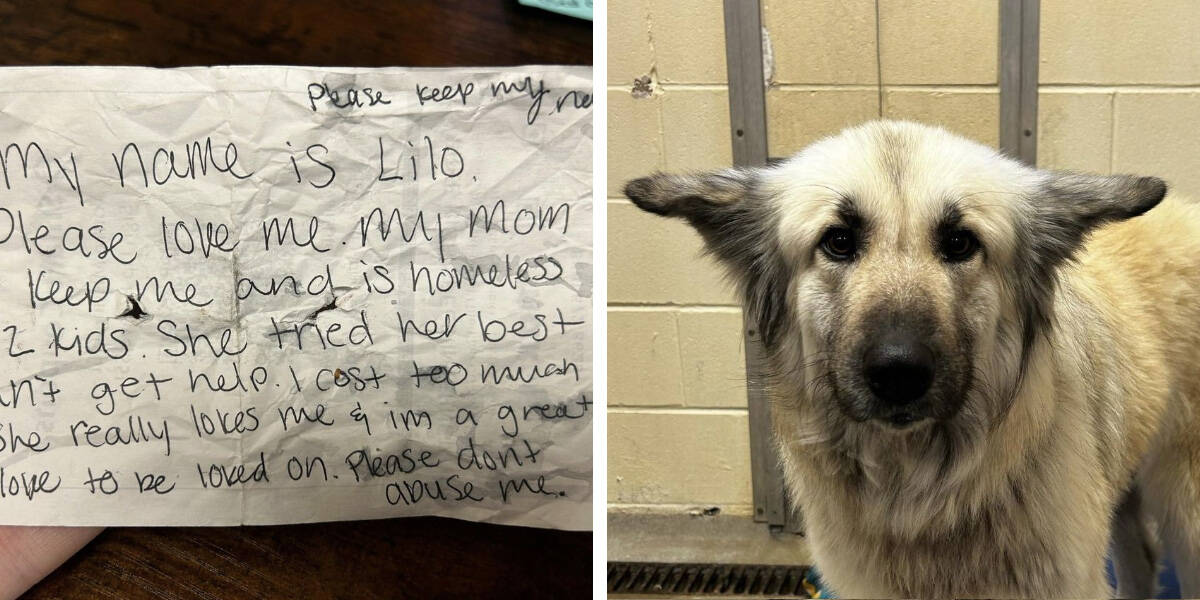 Please keep my
My name is Lilo.
Please love me. My Mom
keep me and is homeless
2 kids. She tried her best
n't get help. I cost too much
She really loves me & im a great
love to be loved on. Please dont
abuse me.